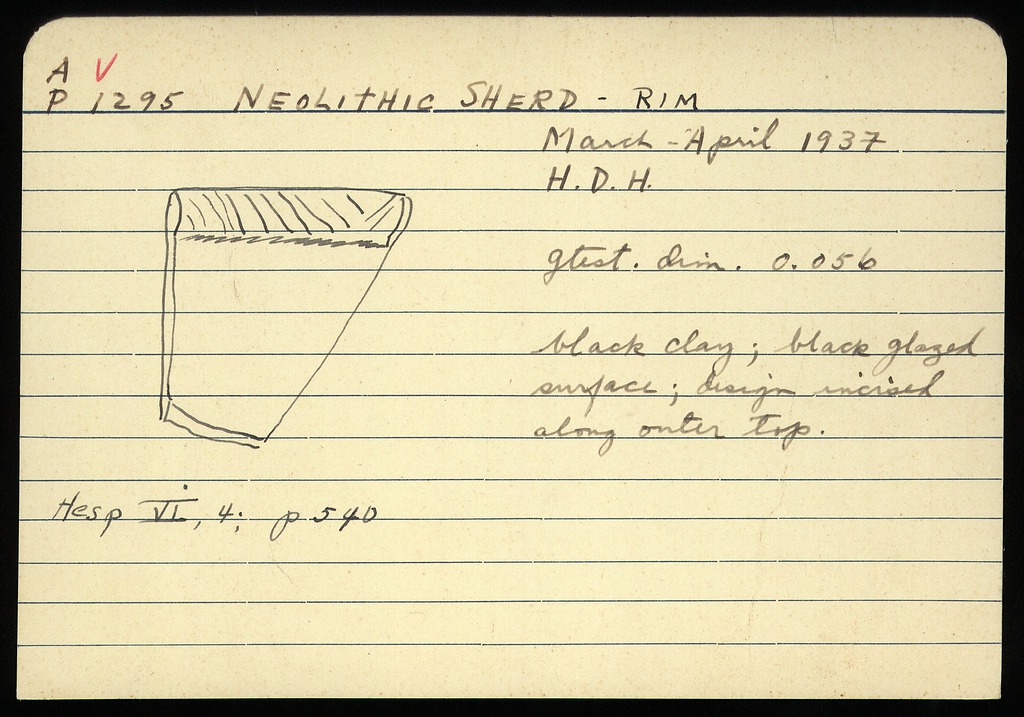 A V
P 1295 NEOLITHIC SHERD - RIM
March - April 1937
H. D. H.
gtest. dim. 0.056
black clay; black glazed
surface; design incised
along outer top.
Hesp VI, 4; p 540